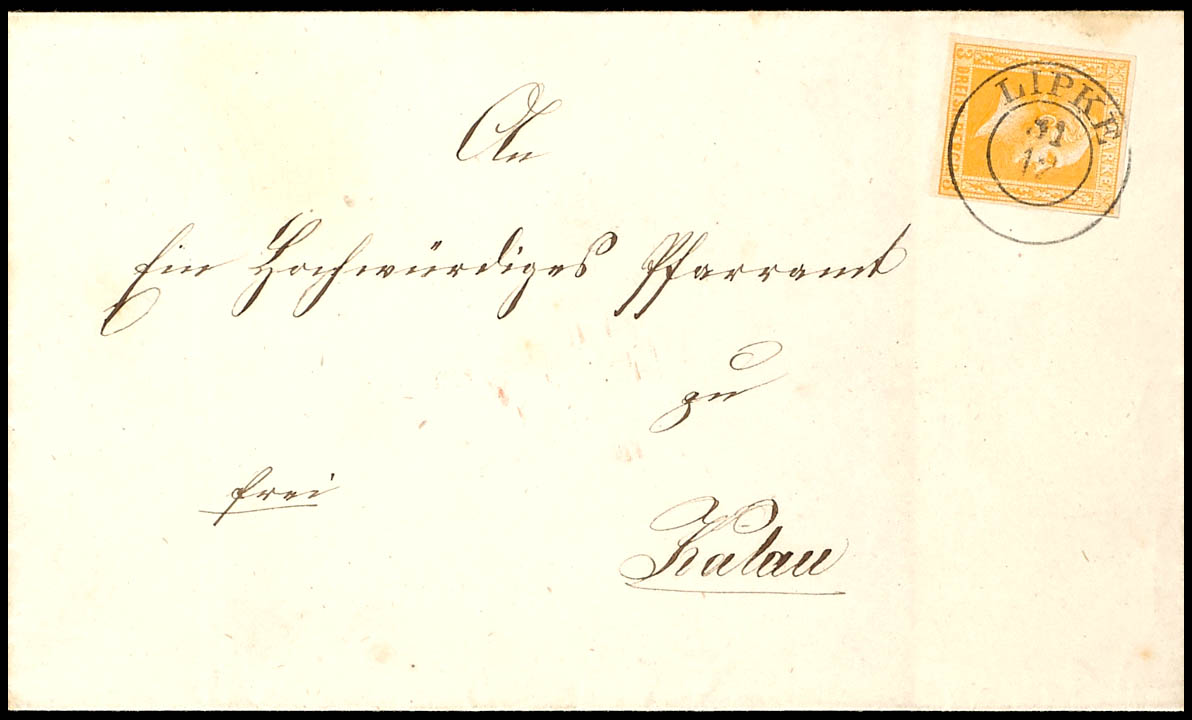 An
Ein Hochwürdiges Pfarramt
zu
Kalau
frei
LIPKE
31
12
3 DREI SILBERGR. 3
FREIMARKE